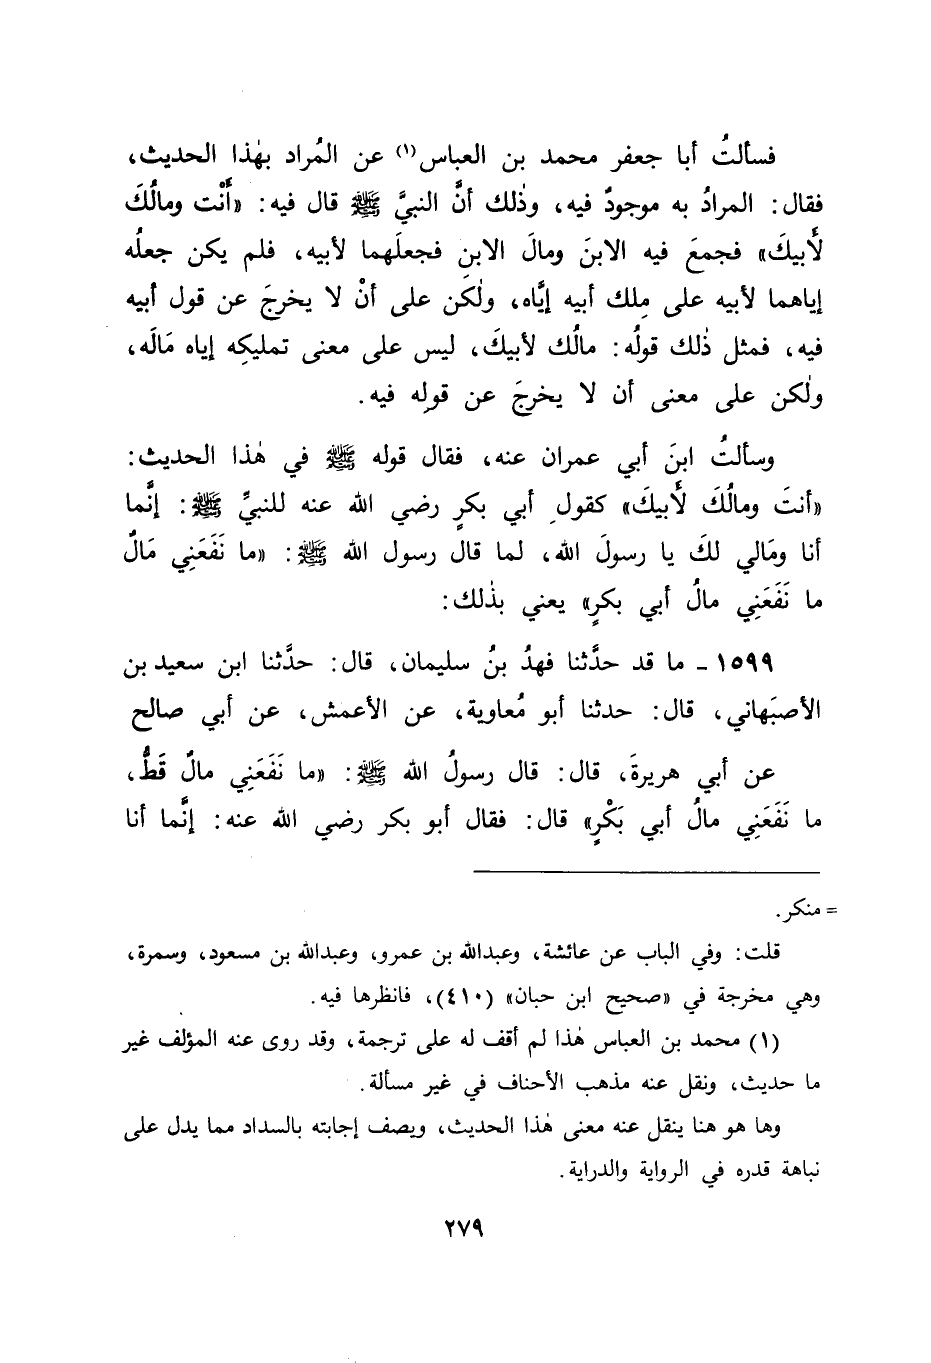 فسألتُ أبا جعفر محمد بن العباس(١) عن المُراد بهٰذا الحديث،
فقال: المرادُ به موجودٌ فيه، وذٰلك أنَّ النبيَّ ﷺ قال فيه: «أَنْت ومالُكَ
لأَبيكَ» فجمعَ فيه الابنَ ومالَ الابنِ فجعلَهما لأبيه، فلم يكن جعلُه
إياهما لأبيه على مِلك أبيه إيَّاه، ولٰكن على أنْ لا يخرجَ عن قول أبيه
فيه، فمثل ذٰلك قولُه: مالُك لأبيكَ، ليس على معنى تمليكِه إياه مَالَه،
ولٰكن على معنى أن لا يخرجَ عن قولِه فيه.
وسألتُ ابنَ أبي عمران عنه، فقال قوله ﷺ في هٰذا الحديث:
«أنتَ ومالُكَ لأَبيكَ» كقولِ أبي بكرٍ رضي الله عنه للنبيِّ ﷺ: إنَّما
أنا ومَالي لكَ يا رسولَ الله، لما قال رسول الله ﷺ: «ما نَفَعَنِي مَالٌ
ما نَفَعَنِي مالُ أبي بكرٍ» يعني بذٰلك:
١٥٩٩ - ما قد حدَّثنا فهدُ بنُ سليمان، قال: حدَّثنا ابن سعيد بن
الأصبَهاني، قال: حدثنا أبو مُعاوية، عن الأعمش، عن أبي صالح
عن أبي هريرةَ، قال: قال رسولُ الله ﷺ: «ما نَفَعَنِي مالٌ قَطُّ،
ما نَفَعَنِي مالُ أبي بَكْرٍ» قال: فقال أبو بكر رضي الله عنه: إنَّما أنا
= منكر.
قلت: وفي الباب عن عائشة، وعبدالله بن عمرو، وعبدالله بن مسعود، وسمرة،
وهي مخرجة في «صحيح ابن حبان» (٤١٠)، فانظرها فيه.
(١) محمد بن العباس هٰذا لم أقف له على ترجمة، وقد روى عنه المؤلف غير
ما حديث، ونقل عنه مذهب الأحناف في غير مسألة.
وها هو هنا ينقل عنه معنى هٰذا الحديث، ويصف إجابته بالسداد مما يدل على
نباهة قدره في الرواية والدراية.
٢٧٩